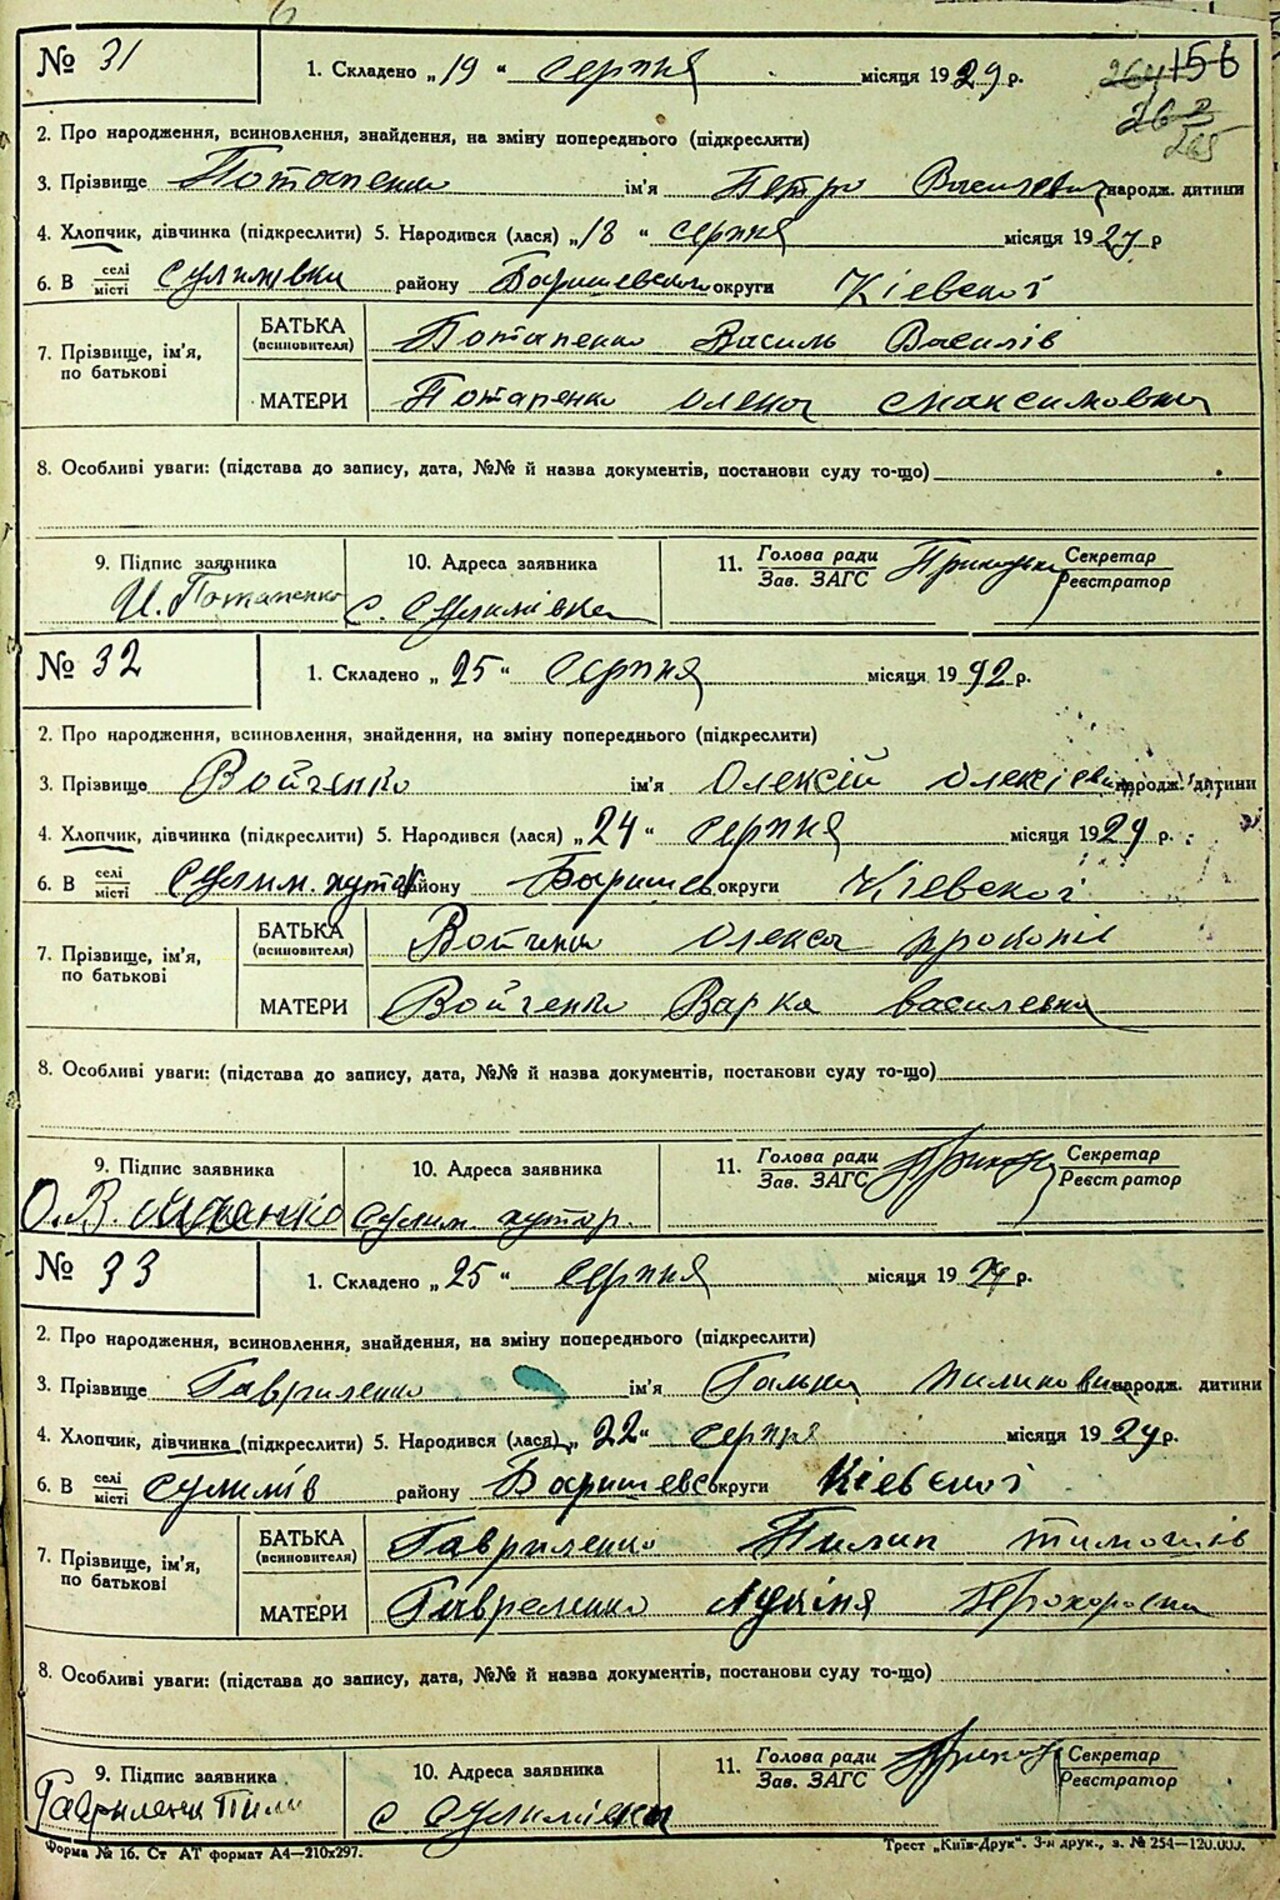 № 31 1. Складено „19“ серпня місяця 1929 р. 156
264
262
265
2. Про народження, всиновлення, знайдення, на зміну попереднього (підкреслити)
3. Прізвище Потапенко ім'я Петро Василевич народж. дитини
4. Хлопчик, дівчинка (підкреслити) 5. Народився (лася) „18“ серпня місяця 1929 р
6. В селі/місті Сулимівки району Баришевского округи Кіевскої
7. Прізвище, ім'я, по батькові БАТЬКА (всиновителя) Потапенко Василь Василів
МАТЕРИ Потапенко Олена Максимовна
8. Особливі уваги: (підстава до запису, дата, №№ й назва документів, постанови суду то-що)
9. Підпис заявника 10. Адреса заявника 11. Голова ради/Зав. ЗАГС Секретар/Реєстратор
И. Потапенко с. Сулимівка
№ 32 1. Складено „25“ серпня місяця 1992 р.
2. Про народження, всиновлення, знайдення, на зміну попереднього (підкреслити)
3. Прізвище Войченко ім'я Олексій Олексіевич народж. дитини
4. Хлопчик, дівчинка (підкреслити) 5. Народився (лася) „24“ серпня місяця 1929 р.
6. В селі/місті Сулим. хутор району Баришев округи Кіевскої
7. Прізвище, ім'я, по батькові БАТЬКА (всиновителя) Войченко Олекса Прокопів
МАТЕРИ Войченко Варка Василевна
8. Особливі уваги: (підстава до запису, дата, №№ й назва документів, постанови суду то-що)
9. Підпис заявника 10. Адреса заявника 11. Голова ради/Зав. ЗАГС Секретар/Реєстратор
О. Войченко Сулим. хутор.
№ 33 1. Складено „25“ серпня місяця 1929 р.
2. Про народження, всиновлення, знайдення, на зміну попереднього (підкреслити)
3. Прізвище Гавриленко ім'я Галька Пилиповна народж. дитини
4. Хлопчик, дівчинка (підкреслити) 5. Народився (лася) „22“ серпня місяця 1929 р.
6. В селі/місті Сулимів району Баришевс округи Кіевскої
7. Прізвище, ім'я, по батькові БАТЬКА (всиновителя) Гавриленко Пилип Тимошів
МАТЕРИ Гавреленко Прохоровна
8. Особливі уваги: (підстава до запису, дата, №№ й назва документів, постанови суду то-що)
9. Підпис заявника 10. Адреса заявника 11. Голова ради/Зав. ЗАГС Секретар/Реєстратор
Гавриленко Пили с Сулимівка
Форма № 16. Ст АТ формат А4—210х297. Трест „Київ-Друк“. 3-я друк., з. № 254—120.000.